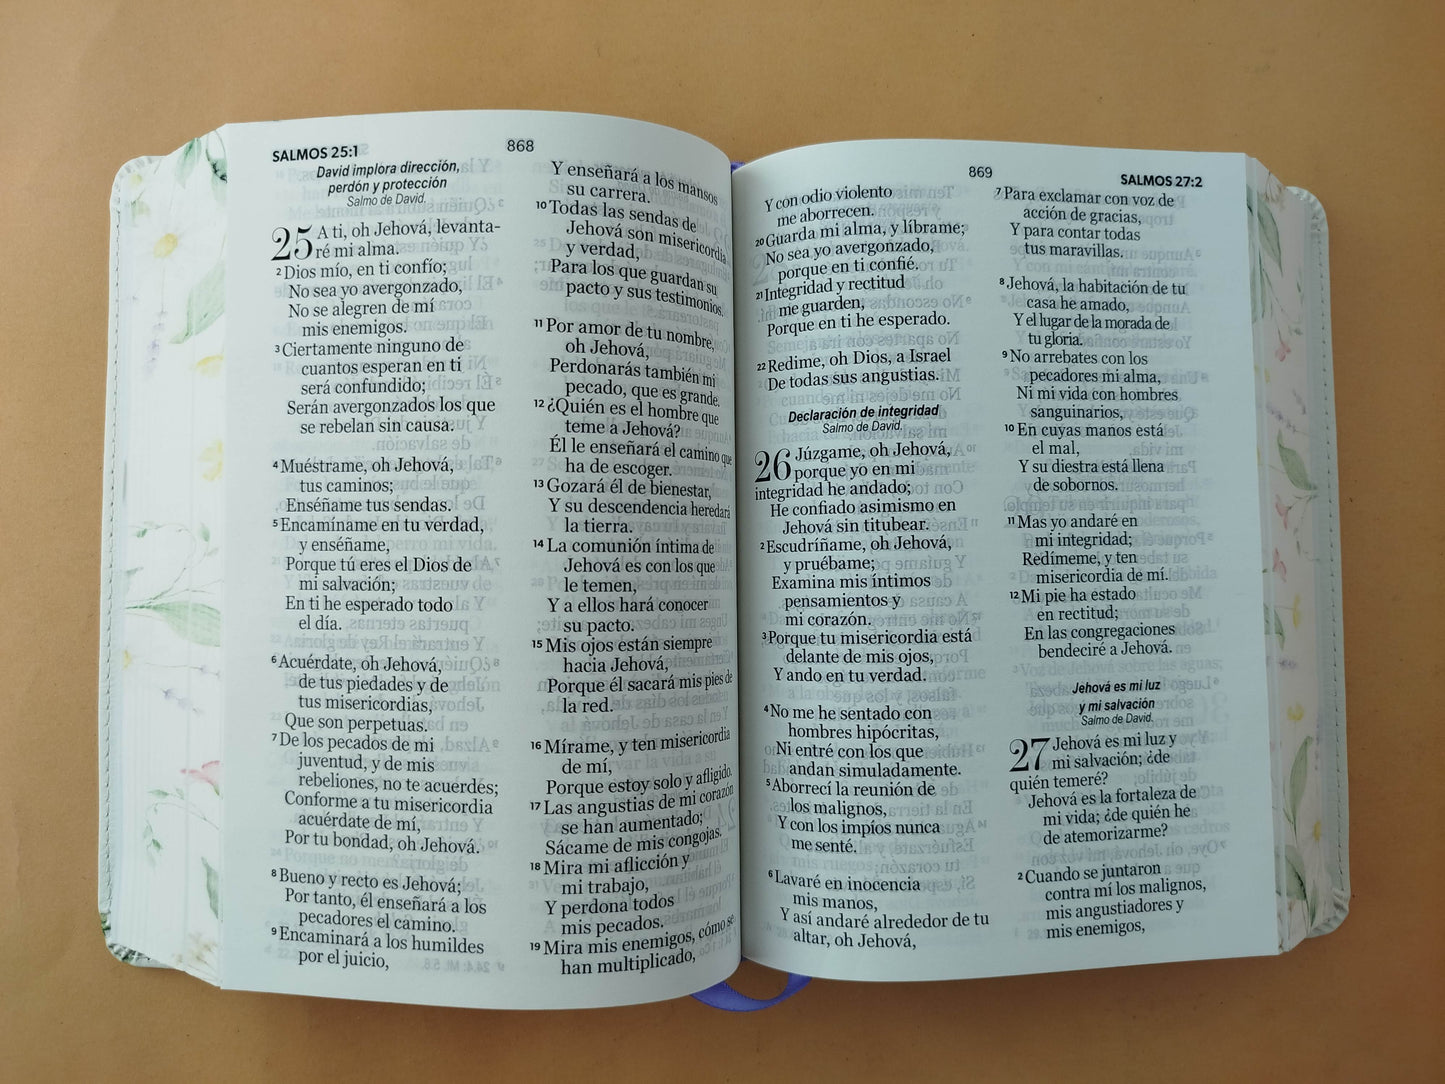 SALMOS 25:1
868
David implora dirección,
perdón y protección
Salmo de David.
25 A ti, oh Jehová, levanta-
ré mi alma.
2 Dios mío, en ti confío;
No sea yo avergonzado,
No se alegren de mí
mis enemigos.
3 Ciertamente ninguno de
cuantos esperan en ti
será confundido;
Serán avergonzados los que
se rebelan sin causa.
4 Muéstrame, oh Jehová,
tus caminos;
Enséñame tus sendas.
5 Encamíname en tu verdad,
y enséñame,
Porque tú eres el Dios de
mi salvación;
En ti he esperado todo
el día.
6 Acuérdate, oh Jehová,
de tus piedades y de
tus misericordias,
Que son perpetuas.
7 De los pecados de mi
juventud, y de mis
rebeliones, no te acuerdes;
Conforme a tu misericordia
acuérdate de mí,
Por tu bondad, oh Jehová.
8 Bueno y recto es Jehová;
Por tanto, él enseñará a los
pecadores el camino.
9 Encaminará a los humildes
por el juicio,
Y enseñará a los mansos
su carrera.
10 Todas las sendas de
Jehová son misericordia
y verdad,
Para los que guardan su
pacto y sus testimonios.
11 Por amor de tu nombre,
oh Jehová,
Perdonarás también mi
pecado, que es grande.
12 ¿Quién es el hombre que
teme a Jehová?
Él le enseñará el camino que
ha de escoger.
13 Gozará él de bienestar,
Y su descendencia heredará
la tierra.
14 La comunión íntima de
Jehová es con los que
le temen,
Y a ellos hará conocer
su pacto.
15 Mis ojos están siempre
hacia Jehová,
Porque él sacará mis pies de
la red.
16 Mírame, y ten misericordia
de mí,
Porque estoy solo y afligido.
17 Las angustias de mi corazón
se han aumentado;
Sácame de mis congojas.
18 Mira mi aflicción y
mi trabajo,
Y perdona todos
mis pecados.
19 Mira mis enemigos, cómo se
han multiplicado,
869
SALMOS 27:2
Y con odio violento
me aborrecen.
20 Guarda mi alma, y líbrame;
No sea yo avergonzado,
porque en ti confié.
21 Integridad y rectitud
me guarden,
Porque en ti he esperado.
22 Redime, oh Dios, a Israel
De todas sus angustias.
Declaración de integridad
Salmo de David.
26 Júzgame, oh Jehová,
porque yo en mi
integridad he andado;
He confiado asimismo en
Jehová sin titubear.
2 Escudríñame, oh Jehová,
y pruébame;
Examina mis íntimos
pensamientos y
mi corazón.
3 Porque tu misericordia está
delante de mis ojos,
Y ando en tu verdad.
4 No me he sentado con
hombres hipócritas,
Ni entré con los que
andan simuladamente.
5 Aborrecí la reunión de
los malignos,
Y con los impíos nunca
me senté.
6 Lavaré en inocencia
mis manos,
Y así andaré alrededor de tu
altar, oh Jehová,
7 Para exclamar con voz de
acción de gracias,
Y para contar todas
tus maravillas.
8 Jehová, la habitación de tu
casa he amado,
Y el lugar de la morada de
tu gloria.
9 No arrebates con los
pecadores mi alma,
Ni mi vida con hombres
sanguinarios,
10 En cuyas manos está
el mal,
Y su diestra está llena
de sobornos.
11 Mas yo andaré en
mi integridad;
Redímeme, y ten
misericordia de mí.
12 Mi pie ha estado
en rectitud;
En las congregaciones
bendeciré a Jehová.
Jehová es mi luz
y mi salvación
Salmo de David.
27 Jehová es mi luz y
mi salvación; ¿de
quién temeré?
Jehová es la fortaleza de
mi vida; ¿de quién he
de atemorizarme?
2 Cuando se juntaron
contra mí los malignos,
mis angustiadores y
mis enemigos,